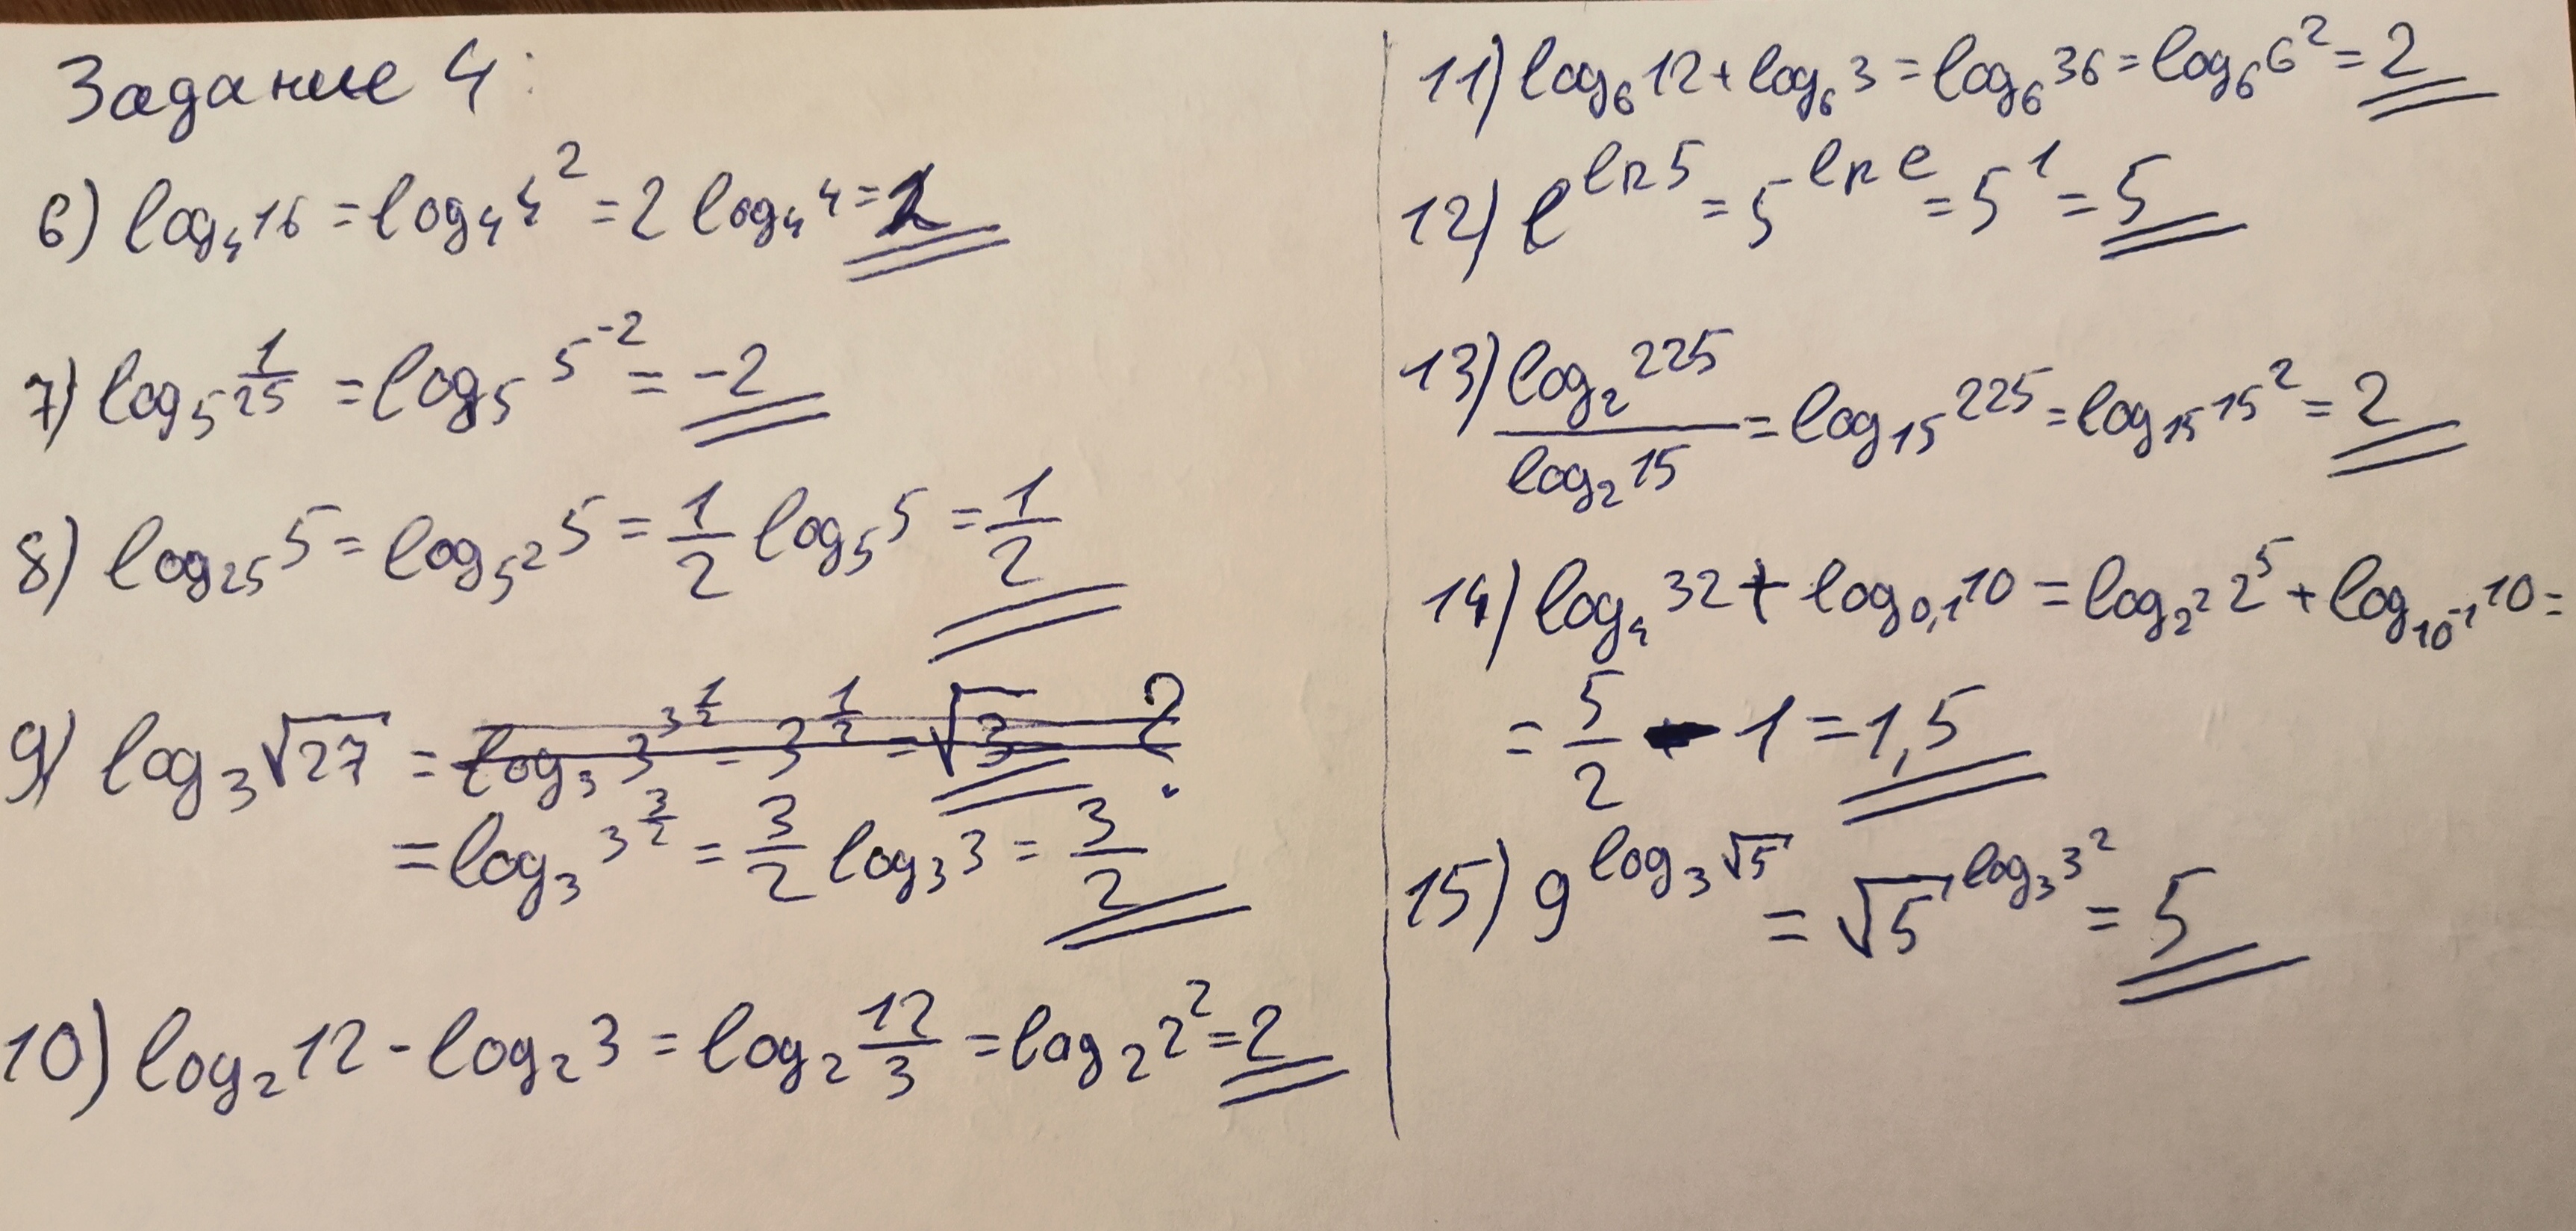 Задание 4:
6) log₄16 = log₄4² = 2 log₄4 = 2
7) log₅ 1/25 = log₅ 5⁻² = -2
8) log₂₅ 5 = log₅² 5 = 1/2 log₅ 5 = 1/2
9) log₃ √27 = log₃ 3^3^(1/2) = 3^(1/2) = √3 ?
= log₃ 3^(3/2) = 3/2 log₃ 3 = 3/2
10) log₂ 12 - log₂ 3 = log₂ 12/3 = log₂ 2² = 2
11) log₆ 12 + log₆ 3 = log₆ 36 = log₆ 6² = 2
12) e^(ln 5) = 5^(ln e) = 5¹ = 5
13) log₂ 225 / log₂ 15 = log₁₅ 225 = log₁₅ 15² = 2
14) log₄ 32 + log₀,₁ 10 = log₂² 2⁵ + log₁₀⁻¹ 10 =
= 5/2 - 1 = 1,5
15) 9^(log₃ √5) = √5^(log₃ 3²) = 5